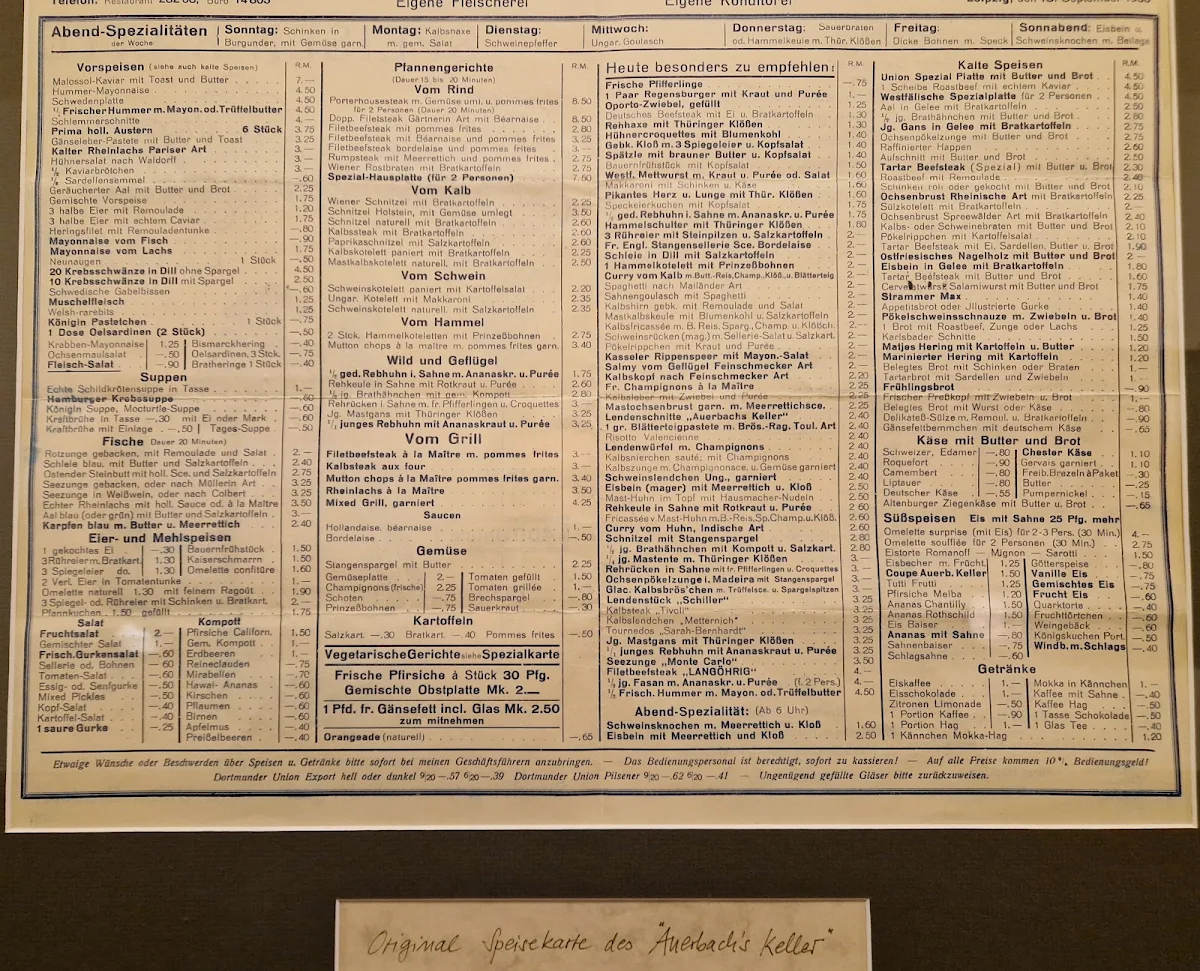 Telefon: Restaurant Büro 14803
Eigene Fleischerei
Eigene Konditorei
Abend-Spezialitäten der Woche
Sonntag: Schinken in Burgunder, mit Gemüse garn.
Montag: Kalbshaxe m. gem. Salat
Dienstag: Schweinepfeffer
Mittwoch: Ungar. Goulasch
Donnerstag: Sauerbraten od. Hammelkeule m. Thür. Klößen
Freitag: Dicke Bohnen m. Speck
Sonnabend: Eisbein u. Schweinsknochen m. Beilage
Vorspeisen (siehe auch kalte Speisen) R.M.
Malossol-Kaviar mit Toast und Butter 7.—
Hummer-Mayonnaise 4.50
Schwedenplatte 4.50
½ Frischer Hummer m. Mayon. od. Trüffelbutter 4.50
Schlemmerschnitte 4.—
Prima holl. Austern 6 Stück 3.75
Gänseleber-Pastete mit Butter und Toast 3.25
Kalter Rheinlachs Pariser Art 3.—
Hühnersalat nach Waldorf 3.—
Kaviarbrötchen 3.—
Sardellensemmel —.60
Geräucherter Aal mit Butter und Brot 2.25
Gemischte Vorspeise 1.75
3 halbe Eier mit Remoulade 1.20
3 halbe Eier mit echtem Caviar 1.75
Heringsfilet mit Remouladentunke —.80
Mayonnaise vom Fisch —.90
Mayonnaise vom Lachs 1.75
Neunaugen 1 Stück —.50
20 Krebsschwänze in Dill ohne Spargel 4.50
10 Krebsschwänze in Dill mit Spargel 2.50
Schwedische Gabelbissen —.60
Muschelfleisch 1.25
Welsh-rarebits 1.25
Königin Pastetchen 1 Stück —.75
1 Dose Oelsardinen (2 Stück) —.50
Krabben-Mayonnaise 1.25 Bismarckhering —.40
Ochsenmaulsalat —.50 Oelsardinen, 3 Stck. —.75
Fleisch-Salat —.90 Bratheringe 1 Stück —.40
Suppen
Echte Schildkrötensuppe in Tasse 1.—
Hamburger Krebssuppe —.60
Königin Suppe, Mocturtle-Suppe —.60
Kraftbrühe in Tasse —.30 mit Ei oder Mark —.60
Kraftbrühe mit Einlage —.50 Tages-Suppe —.50
Fische (Dauer 20 Minuten)
Rotzunge gebacken, mit Remoulade und Salat 2.—
Schleie blau, mit Butter und Salzkartoffeln 2.40
Ostender Steinbutt mit holl. Sce. und Salzkartoffeln 2.75
Seezunge gebacken, oder nach Müllerin Art 3.25
Seezunge in Weißwein, oder nach Colbert 3.25
Echter Rheinlachs mit holl. Sauce od. à la Maître 3.50
Aal blau (oder grün) mit Butter und Salzkartoffeln 3.—
Karpfen blau m. Butter u. Meerrettich 2.40
Eier- und Mehlspeisen
1 gekochtes Ei —.30 Bauernfrühstück 1.50
3 Rühreier m. Bratkart. 1.30 Kaiserschmarrn 1.50
3 Spiegeleier do. 1.30 Omelette confitüre 1.60
2 Verl. Eier in Tomatentunke 1.—
Omelette naturell 1.30 mit feinem Ragoût 1.90
3 Spiegel- od. Rühreier mit Schinken u. Bratkart. 2.—
Pfannkuchen 1.50 gefüllt 1.75
Salat
Kompott
Fruchtsalat 2.— Pfirsiche Californ. 1.50
Gemischter Salat 1.— Gem. Kompott 1.—
Frisch. Gurkensalat —.60 Erdbeeren 1.—
Sellerie od. Bohnen —.60 Reineclauden —.75
Tomaten-Salat —.60 Mirabellen —.70
Essig- od. Senfgurke —.50 Hawai-Ananas —.60
Mixed Pickles —.50 Kirschen —.60
Kopf-Salat —.40 Pflaumen —.60
Kartoffel-Salat —.40 Birnen —.60
1 saure Gurke —.25 Apfelmus —.40
Preißelbeeren —.40
Pfannengerichte R.M.
(Dauer 15 bis 20 Minuten)
Vom Rind
Porterhousesteak m. Gemüse uml. u. pommes frites 8.50
für 2 Personen (Dauer 20 Minuten)
Dopp. Filetsteak Gärtnerin Art mit Béarnaise 8.50
Filetbeefsteak mit pommes frites 2.80
Filetbeefsteak mit Béarnaise und pommes frites 3.25
Filetbeefsteak bordelaise und pommes frites 3.—
Rumpsteak mit Meerrettich und pommes frites 2.75
Wiener Rostbraten mit Bratkartoffeln 2.75
Spezial-Hausplatte (für 2 Personen) 7.50
Vom Kalb
Wiener Schnitzel mit Bratkartoffeln 2.25
Schnitzel Holstein, mit Gemüse umlegt 3.50
Schnitzel naturell mit Bratkartoffeln 2.60
Kalbssteak mit Bratkartoffeln 2.60
Paprikaschnitzel mit Salzkartoffeln 2.60
Kalbskotelett paniert mit Bratkartoffeln 2.25
Mastkalbskotelett naturell. mit Bratkartoffeln 2.50
Vom Schwein
Schweinskotelett paniert mit Kartoffelsalat 2.20
Ungar. Kotelett mit Makkaroni 2.35
Schweinskotelett naturell. mit Salzkartoffeln 2.35
Vom Hammel
2 Stck. Hammelkoteletten mit Prinzeßbohnen 2.75
Mutton chops à la maître m. pommes frites garn. 3.40
Wild und Geflügel
½ ged. Rebhuhn i. Sahne m. Ananaskr. u. Purée 1.75
Rehkeule in Sahne mit Rotkraut u. Purée 2.60
½ jg. Brathähnchen mit gem. Kompott 2.80
Rehrücken i. Sahne m. fr. Pfifferlingen u. Croquettes 3.—
Jg. Mastgans mit Thüringer Klößen 3.25
½ junges Rebhuhn mit Ananaskraut u. Purée 3.25
Vom Grill
Filetbeefsteak à la Maître m. pommes frites 3.—
Kalbsteak aux four 3.—
Mutton chops à la Maître pommes frites garn. 3.40
Rheinlachs à la Maître 3.50
Mixed Grill, garniert 4.25
Saucen
Hollandaise. béarnaise 1.—
Bordelaise —.50
Gemüse
Stangenspargel mit Butter 2.25
Gemüseplatte 2.— Tomaten gefüllt 1.50
Champignons (frische) 2.25 Tomaten grillée 1.—
Schoten —.75 Brechspargel —.80
Prinzeßbohnen —.75 Sauerkraut —.30
Kartoffeln
Salzkart. —.30 Bratkart. —.40 Pommes frites —.50
Vegetarische Gerichte siehe Spezialkarte
Frische Pfirsiche à Stück 30 Pfg.
Gemischte Obstplatte Mk. 2.—
1 Pfd. fr. Gänsefett incl. Glas Mk. 2.50
zum mitnehmen
Orangeade (naturell) —.65
Heute besonders zu empfehlen: R.M.
Frische Pfifferlinge —.75
1 Paar Regensburger mit Kraut und Purée 1.—
Oporto-Zwiebel, gefüllt 1.25
Deutsches Beefsteak mit Ei u. Bratkartoffeln 1.30
Rehhaxe mit Thüringer Klößen 1.30
Hühnercroquettes mit Blumenkohl 1.40
Gebk. Kloß m. 3 Spiegeleier u. Kopfsalat 1.40
Spätzle mit brauner Butter u. Kopfsalat 1.40
Bauernfrühstück mit Kopfsalat 1.50
Westf. Mettwurst m. Kraut u. Purée od. Salat 1.60
Makkaroni mit Schinken u. Käse 1.60
Pikantes Herz u. Lunge mit Thür. Klößen 1.60
Speckeierkuchen mit Kopfsalat 1.75
½ ged. Rebhuhn i. Sahne m. Ananaskr. u. Purée 1.75
Hammelschulter mit Thüringer Klößen 1.80
3 Rühreier mit Steinpilzen u. Salzkartoffeln 2.—
Fr. Engl. Stangensellerie Sce. Bordelaise 2.—
Schleie in Dill mit Salzkartoffeln 2.—
1 Hammelkotelett mit Prinzeßbohnen 2.—
Curry vom Kalb m. Butt.-Reis, Champ., Klöß., u. Blätterteig 2.—
Spaghetti nach Mailänder Art 2.—
Sahnengoulasch mit Spaghetti 2.—
Kalbshirn gebk. mit Remoulade und Salat 2.—
Mastkalbskeule mit Blumenkohl u. Salzkartoffeln 2.—
Kalbsfricassée m. B. Reis, Sparg., Champ. u. Klößch. 2.—
Schweinsrücken (mag.) m. Sellerie-Salat u. Salzkart. 2.—
Pökelrippchen mit Kraut und Purée 2.—
Kasseler Rippenspeer mit Mayon.-Salat 2.—
Salmy vom Geflügel Feinschmecker Art 2.—
Kalbskopf nach Feinschmecker Art 2.20
Fr. Champignons à la Maître 2.25
Kalbsleber mit Zwiebel und Purée 2.25
Mastochsenbrust garn. m. Meerrettichsce. 2.25
Lendenschnitte „Auerbachs Keller" 2.40
1 gr. Blätterteigpastete m. Brös.-Rag. Toul. Art 2.40
Risotto Valencienne 2.40
Lendenwürfel m. Champignons 2.40
Kalbsnierchen sauté; mit Champignons 2.40
Kalbszunge m. Champignonsce. u. Gemüse garniert 2.40
Schweinslendchen Ung., garniert 2.40
Eisbein (mager) mit Meerrettich u. Kloß 2.50
Mast-Huhn im Topf mit Hausmacher-Nudeln 2.50
Rehkeule in Sahne mit Rotkraut u. Purée 2.60
Fricassée v. Mast-Huhn m. B.-Reis, Sp. Champ. u. Klöß. 2.60
Curry vom Huhn, Indische Art 2.60
Schnitzel mit Stangenspargel 2.80
½ jg. Brathähnchen mit Kompott u. Salzkart. 2.80
½ jg. Mastente m. Thüringer Klößen 3.—
Rehrücken in Sahne mit fr. Pfifferlingen u. Croquettes 3.—
Ochsenpökelzunge i. Madeira mit Stangenspargel 3.—
Glac. Kalbsbrös'chen m. Trüffelsce. u. Spargelspitzen 3.—
Lendenstück „Schiller" 3.25
Kalbsteak „Tivoli" 3.25
Kalbslendchen „Metternich" 3.25
Tournedos „Sarah-Bernhardt" 3.25
Jg. Mastgans mit Thüringer Klößen 3.25
½ junges Rebhuhn mit Ananaskraut u. Purée 3.25
Seezunge „Monte Carlo" 3.50
Filetbeefsteak „LANGÖHRIG" 4.—
½ jg. Fasan m. Ananaskr. u. Purée (f. 2 Pers.) 4.—
½ Frisch. Hummer m. Mayon. od. Trüffelbutter 4.50
Abend-Spezialität: (Ab 6 Uhr)
Schweinsknochen m. Meerrettich u. Kloß 1.60
Eisbein mit Meerrettich und Kloß 2.50
Kalte Speisen R.M.
Union Spezial Platte mit Butter und Brot 4.50
1 Scheibe Roastbeef mit echtem Kaviar 4.50
Westfälische Spezialplatte für 2 Personen 4.50
Aal in Gelée mit Bratkartoffeln 2.50
½ jg. Brathähnchen mit Butter und Brot 2.80
Jg. Gans in Gelee mit Bratkartoffeln 2.75
Ochsenpökelzunge mit Butter und Brot 2.75
Raffinierter Happen 2.60
Aufschnitt mit Butter und Brot 2.50
Tartar Beefsteak (Spezial) mit Butter u. Brot 2.30
Roastbeef mit Remoulade 2.40
Schinken roh oder gekocht mit Butter und Brot 2.10
Ochsenbrust Rheinische Art mit Bratkartoffeln 2.25
Sülzkotelett mit Bratkartoffeln 2.—
Ochsenbrust Spreewälder Art mit Bratkartoffeln 2.40
Kalbs- oder Schweinebraten mit Bratkartoffeln 2.10
Pökelrippchen mit Kartoffelsalat 2.10
Tartar Beefsteak mit Ei, Sardellen, Butter u. Brot 1.90
Ostfriesisches Nagelholz mit Butter und Brot 2.—
Eisbein in Gelee mit Bratkartoffeln 1.80
Tartar Beefsteak mit Butter und Brot 1.60
Salamiwurst mit Butter und Brot 1.75
Strammer Max 1.40
Appetitsbrot oder Jllustrierte Gurke 1.40
Pökelschweinsschnauze m. Zwiebeln u. Brot 1.40
1 Brot mit Roastbeef, Zunge oder Lachs 1.25
Karlsbader Schnitte 1.50
Matjes Hering mit Kartoffeln u. Butter 1.20
Marinierter Hering mit Kartoffeln 1.20
Belegtes Brot mit Schinken oder Braten 1.—
Tartarbrot mit Sardellen und Zwiebeln 1.—
Frühlingsbrot —.90
Frischer Preßkopf mit Zwiebeln u. Brot 1.—
Belegtes Brot mit Wurst oder Käse —.80
Delikateß-Sülze m. Remoul. u. Bratkartoffeln —.90
Gänsefettbemmchen mit deutschem Käse —.65
Käse mit Butter und Brot
Schweizer, Edamer —.80 Chester Käse 1.10
Roquefort —.90 Gervais garniert 1.10
Camembert —.80 Freib. Brezeln à Paket —.30
Liptauer —.80 Butter —.25
Deutscher Käse —.55 Pumpernickel —.15
Altenburger Ziegenkäse mit Butter u. Brot —.65
Süßspeisen Eis mit Sahne 25 Pfg. mehr
Omelette surprise (mit Eis) für 2-3 Pers. (30 Min.) 4.—
Omelette soufflée für 2 Personen (30 Min.) 2.75
Eistorte Romanoff — Mignon — Sarotti 1.50
Eisbecher m. Frücht. 1.25 Götterspeise —.80
Coupe Auerb. Keller 1.50 Vanille Eis —.75
Tutti Frutti 1.25 Gemischtes Eis —.75
Pfirsiche Melba 1.20 Frucht Eis —.60
Ananas Chantilly 1.50 Quarktorte —.40
Ananas Rothschild 1.50 Fruchttörtchen —.50
Eis Baiser 1.— Weingebäck —.60
Ananas mit Sahne —.80 Königskuchen Port. —.50
Sahnenbaiser —.75 Windb. m. Schlags —.40
Schlagsahne —.60
Getränke
Eiskaffee 1.— Mokka in Kännchen 1.—
Eisschokolade 1.— Kaffee mit Sahne —.40
Zitronen Limonade —.50 Kaffee Hag —.50
1 Portion Kaffee —.90 1 Tasse Schokolade —.50
1 Portion Hag 1.— 1 Glas Tee —.40
1 Kännchen Mokka-Hag 1.20
Etwaige Wünsche oder Beschwerden über Speisen u. Getränke bitte sofort bei meinen Geschäftsführern anzubringen. — Das Bedienungspersonal ist berechtigt, sofort zu kassieren! — Auf alle Preise kommen 10 %. Bedienungsgeld!
Dortmunder Union Export hell oder dunkel 9/20 —.57 6/20 —.39 Dortmunder Union Pilsener 9/20 —.62 6/20 —.41 — Ungenügend gefüllte Gläser bitte zurückzuweisen.
Original Speisekarte des "Auerbach's Keller"